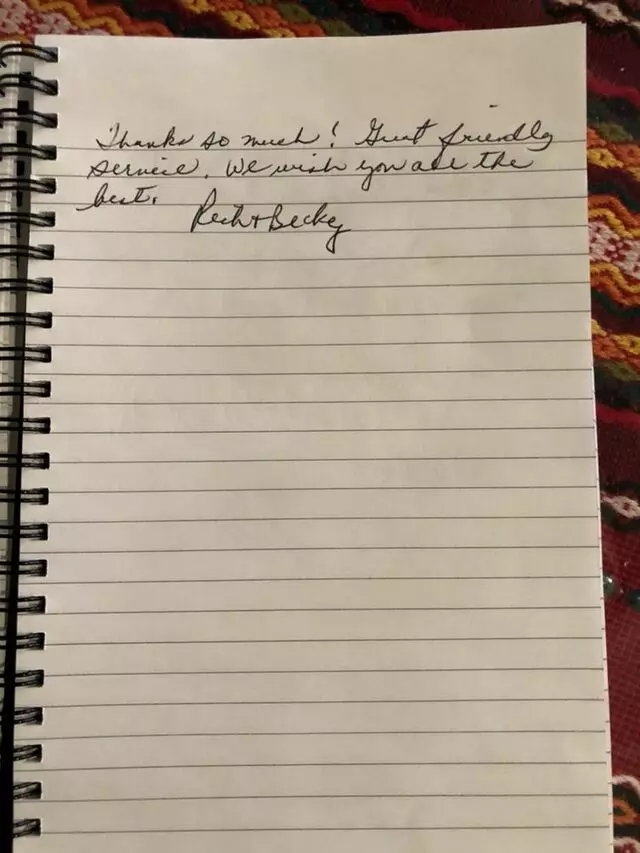 Thanks so much! Great friendly
service. We wish you all the
best.
Rich + Becky